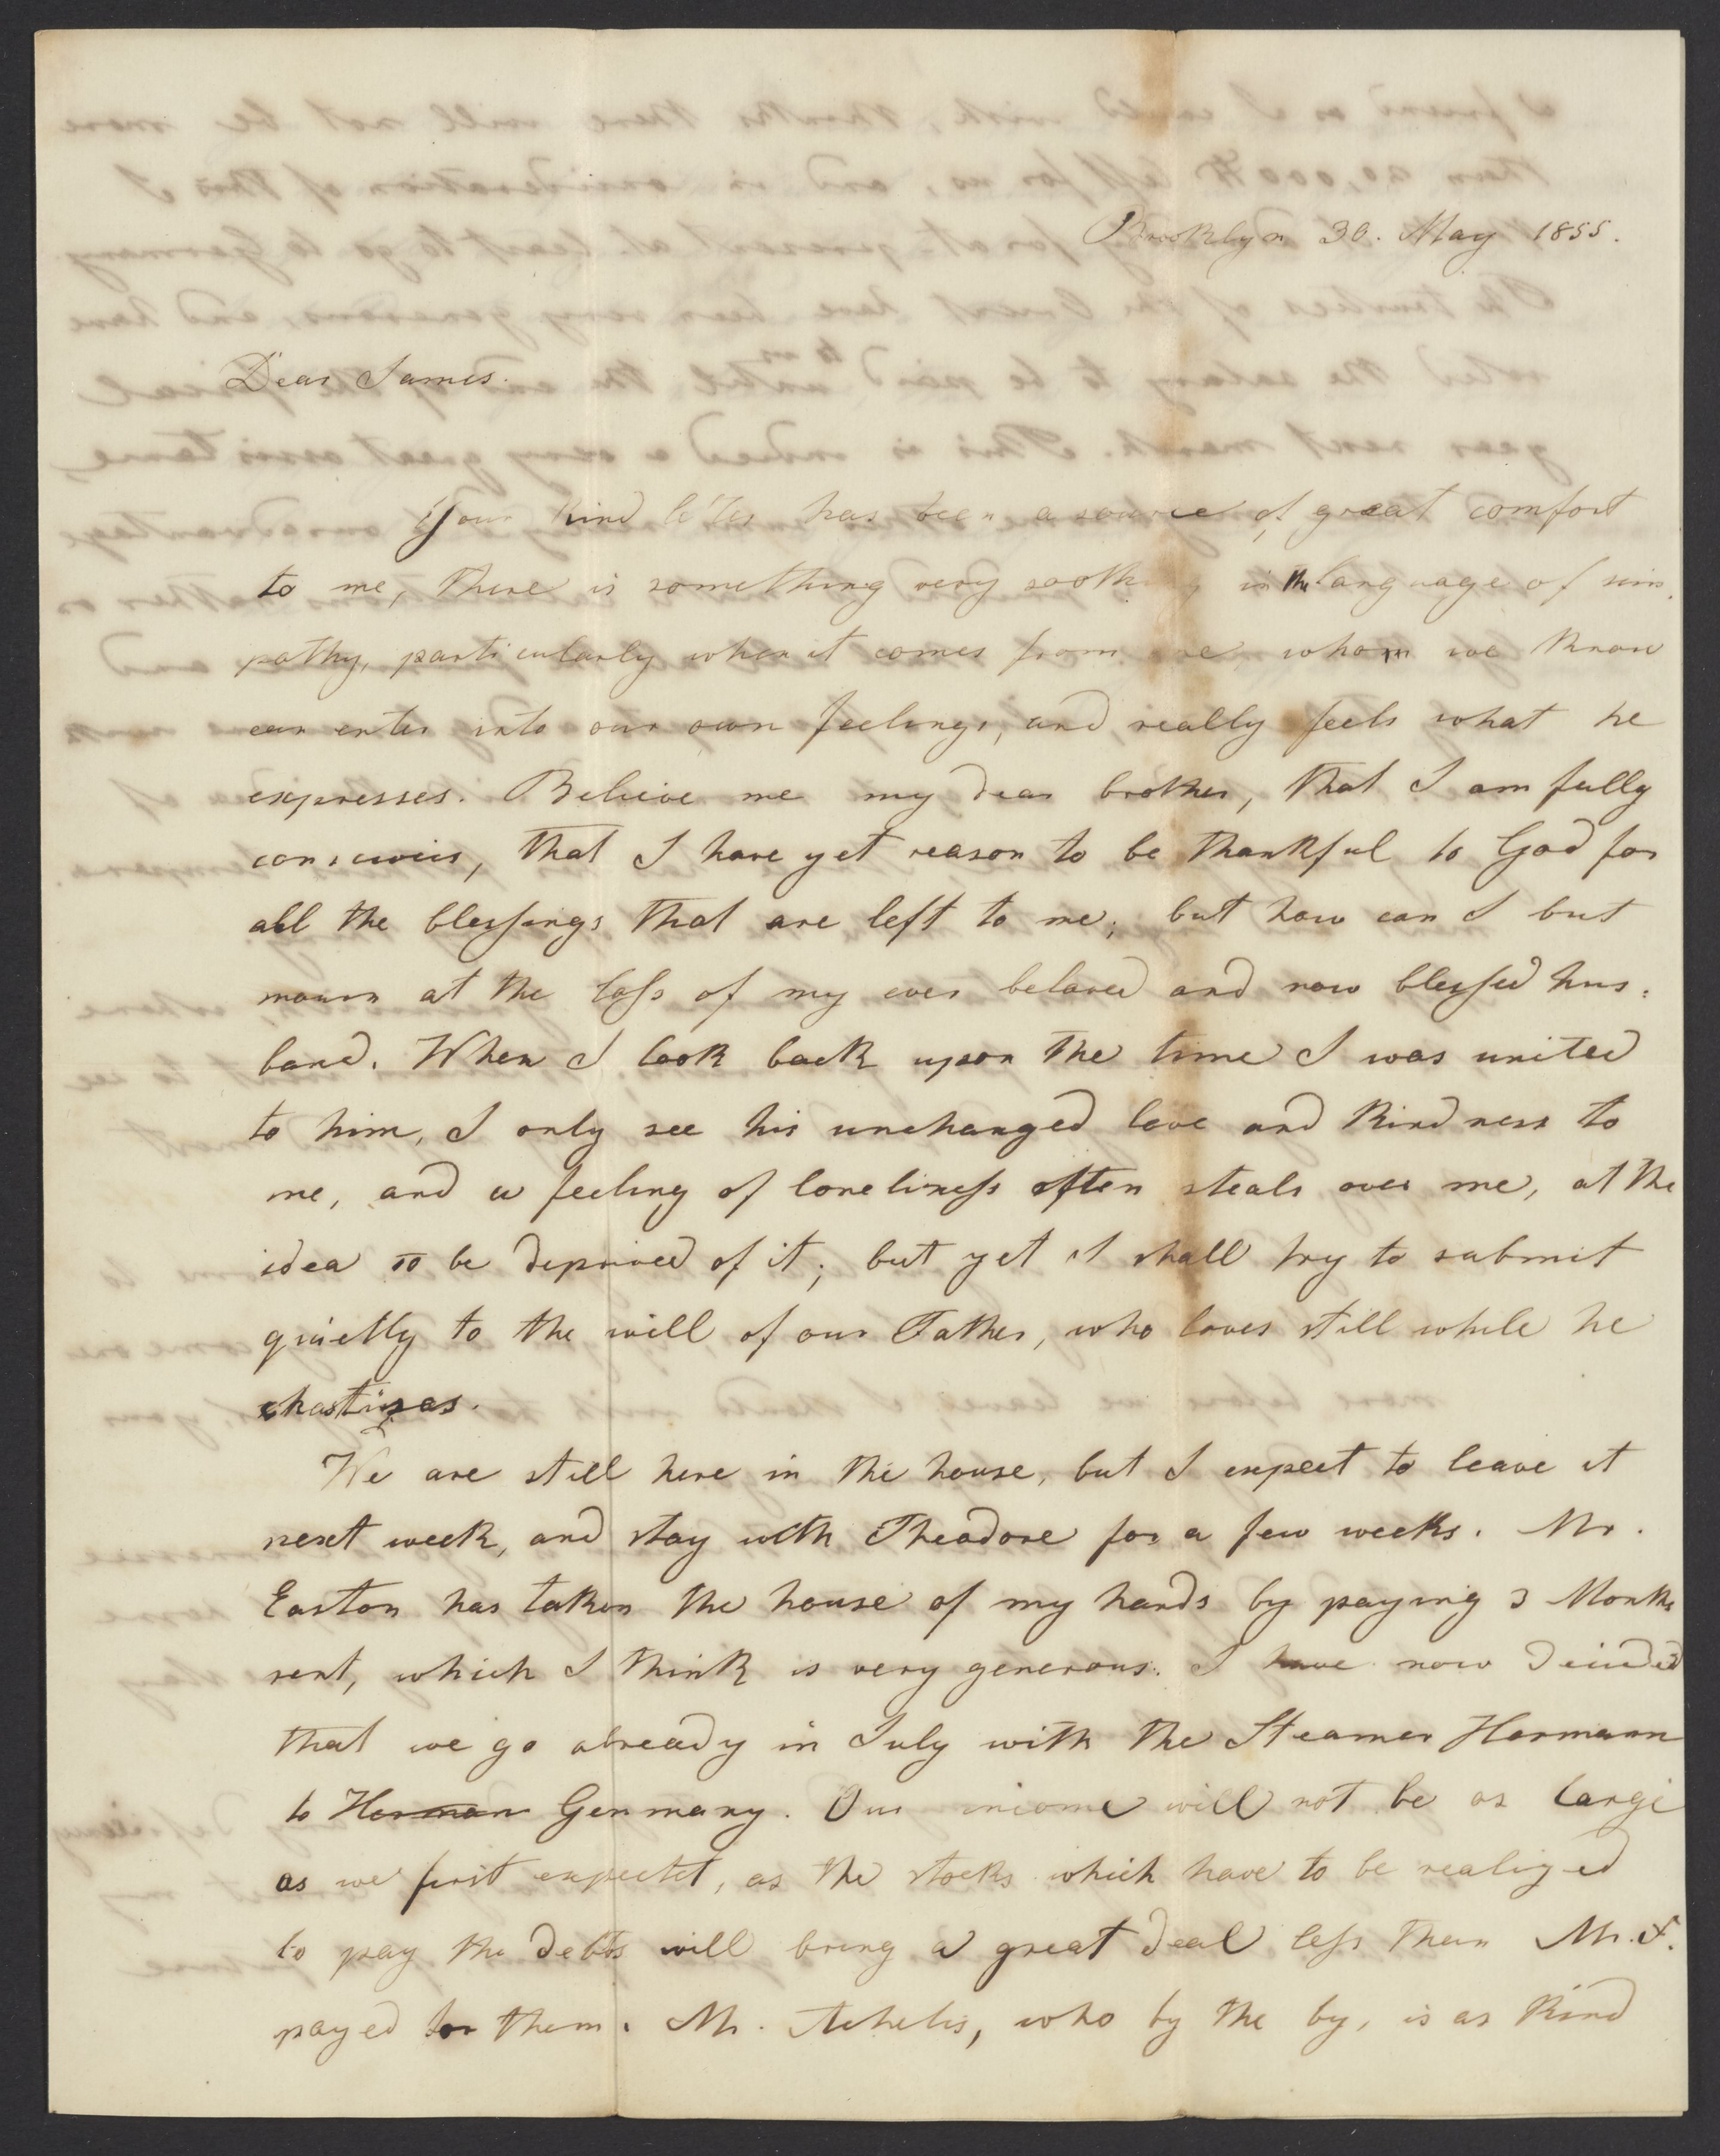 Brooklyn 30. May 1855.
Dear James.
Your kind letter has been a source of great comfort
to me, there is something very soothing in the language of sim,
pathy, particularly when it comes from one, whom we know
can enter into our own feelings, and really feels what he
expresses. Believe me my dear brother, that I am fully
conscious, that I have yet reason to be thankful to God for
all the blessings that are left to me; but how can I but
mourn at the loss of my ever beloved and now blessed hus:
band. When I look back upon the time I was united
to him, I only see his unchanged love and kindness to
me, and a feeling of loneliness often steals over me, at the
idea to be deprived of it; but yet I shall try to submit
quietly to the will of our Father, who loves still while he
chastises.
We are still here in the house, but I expect to leave it
next week, and stay with Theodore for a few weeks. Mr.
Easton has taken the house of my hands by paying 3 Months
rent, which I think is very generous. I have now decided
that we go already in July with the Steamer Hermann
to Herman Germany. Our income will not be as large
as we first expectet, as the stocks which have to be realized
to pay the debts will bring a great deal less than Mr. F.
payed for them. Mr. Achelis, who by the by, is as kind